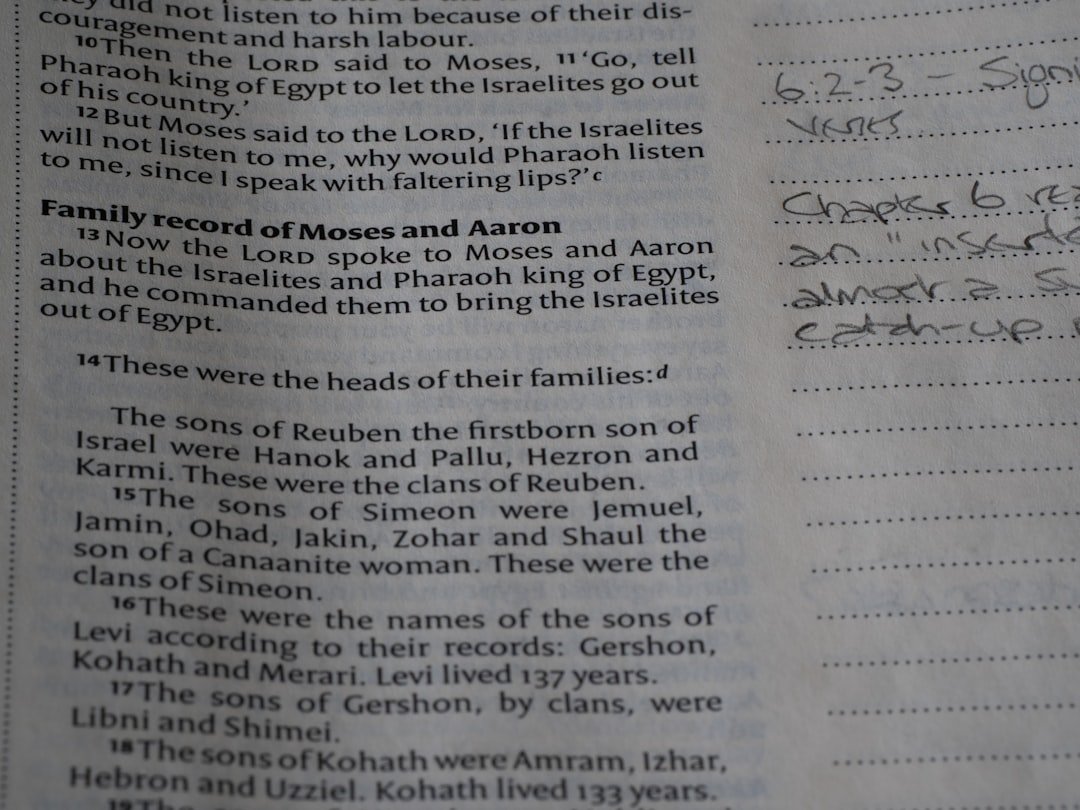 did not listen to him because of their dis-
couragement and harsh labour.
10 Then the LORD said to Moses, 11 ‘Go, tell
Pharaoh king of Egypt to let the Israelites go out
of his country.’
12 But Moses said to the LORD, ‘If the Israelites
will not listen to me, why would Pharaoh listen
to me, since I speak with faltering lips?’ c
Family record of Moses and Aaron
13 Now the LORD spoke to Moses and Aaron
about the Israelites and Pharaoh king of Egypt,
and he commanded them to bring the Israelites
out of Egypt.
14 These were the heads of their families: d
The sons of Reuben the firstborn son of
Israel were Hanok and Pallu, Hezron and
Karmi. These were the clans of Reuben.
15 The sons of Simeon were Jemuel,
Jamin, Ohad, Jakin, Zohar and Shaul the
son of a Canaanite woman. These were the
clans of Simeon.
16 These were the names of the sons of
Levi according to their records: Gershon,
Kohath and Merari. Levi lived 137 years.
17 The sons of Gershon, by clans, were
Libni and Shimei.
18 The sons of Kohath were Amram, Izhar,
Hebron and Uzziel. Kohath lived 133 years.
6:2-3 – Signi
verses
Chapter 6 rea
an "inserte
almost a
catch-up